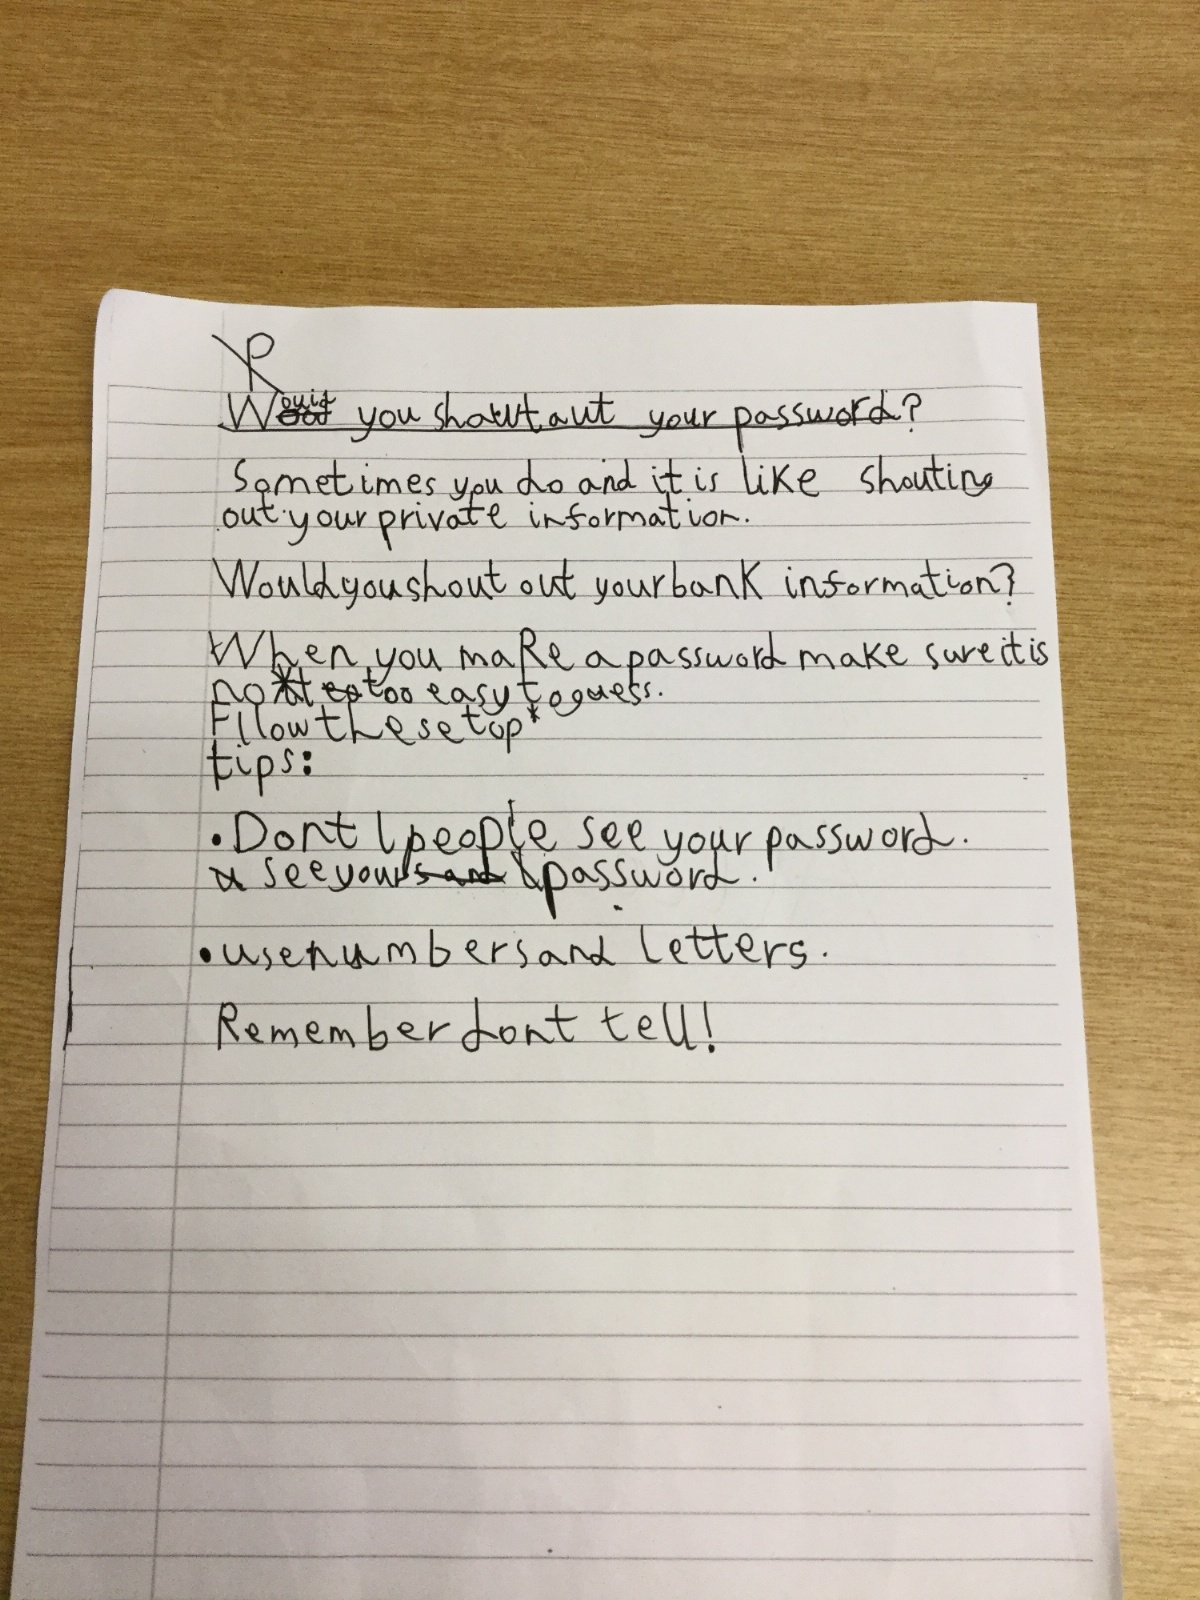 Would you shout out your password?
Sometimes you do and it is like shouting
out your private information.
Would you shout out your bank information?
When you make a password make sure it is
not too easy to guess.
Fllow these top*
tips:
• Dont l people see your password.
see yours and password.
• use numbers and letters.
Remember dont tell!